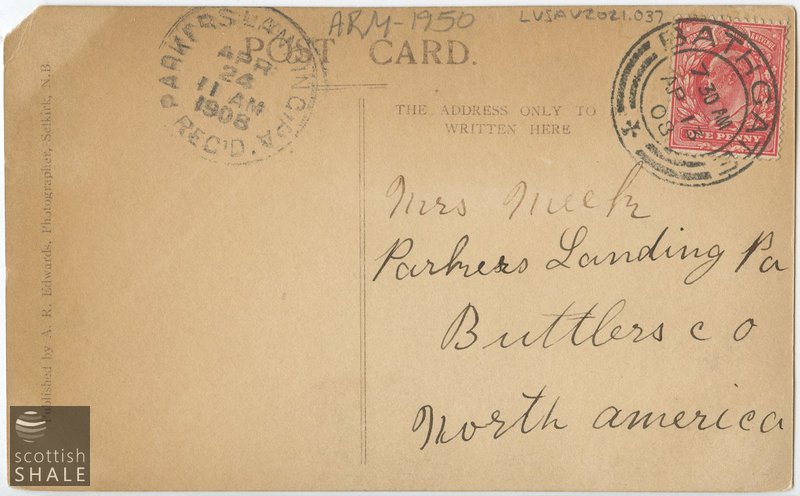 ARM-1950
LVSAV2021.037
POST CARD.
PARKERS LANDING PA.
APR
24
11 AM
1908
REC'D.
BATHGATE
7 30 AM
AP 13
08
ONE PENNY
THE ADDRESS ONLY TO
WRITTEN HERE
Mrs Meek
Parkers Landing Pa
Buttlers co
North america
Published by A. R. Edwards, Photographer, Selkirk, N.B.
scottish
SHALE